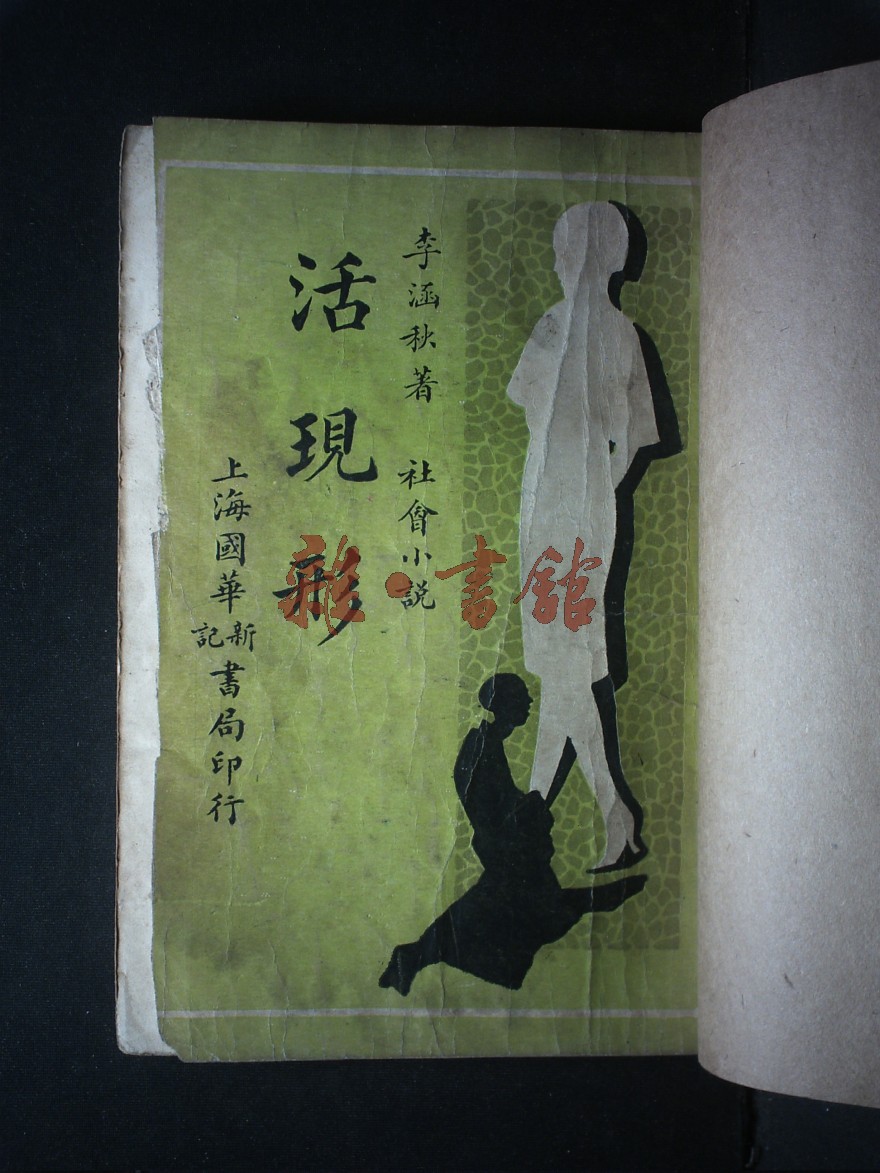 李涵秋著 社會小説
活現形
上海國華新記書局印行
雜·書館